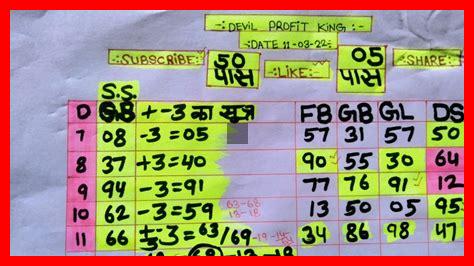 -: DEVIL PROFIT KING :-
-: DATE 11-03-22 :-
-: SUBSCRIBE :- 50 पास -: LIKE :- 05 पास -: SHARE :-
S.S.
D GB +-3 का सूत्र FB GB GL DS
7 08 -3=05 57 31 57 50
8 37 +3=40 90 55 30 64
9 94 -3=91 77 76 91 12
10 62 -3=59 63-68 13-18 13 50 05 95
11 66 +-3=63/69 -19-14- 34 86 98 47